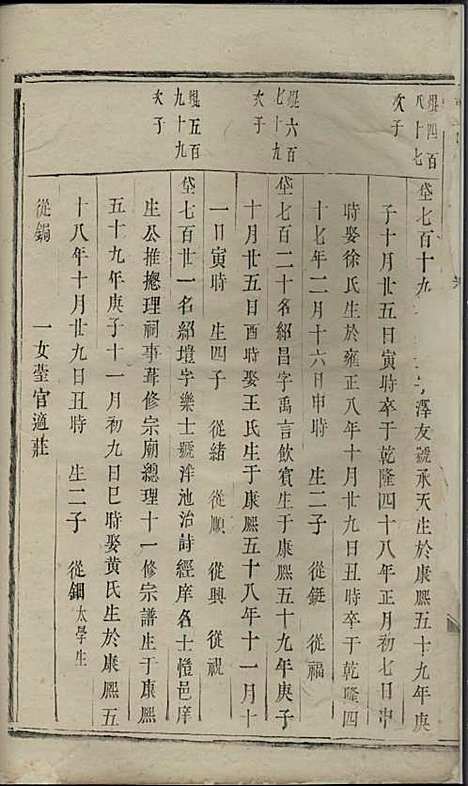 焜四百
八十七
次子
垡七百十九
字澤友號承天生於康熙五十九年庚
子十月廿五日寅時卒于乾隆四十八年正月初七日申
時娶徐氏生於雍正八年十月廿九日丑時卒于乾隆四
十七年二月十六日申時　生二子　從鋌　從福
焜六百
七十九
次子
垡七百二十名紹昌字禹言飲賓生于康熙五十九年庚子
十月廿五日酉時娶王氏生于康熙五十八年十一月十
一日寅時　生四子　從緒　從順　從興　從視
焜五百
九十九
次子
垡七百廿一名紹塏字樂士號泮池治詩經庠名士愷邑庠
生公推總理祠事葺修宗廟總理十一修宗譜生于康熙
五十九年庚子十一月初九日巳時娶黄氏生於康熙五
十八年十月廿九日丑時　生二子　從鈿太學生
從鍋　一女瑩官適莊